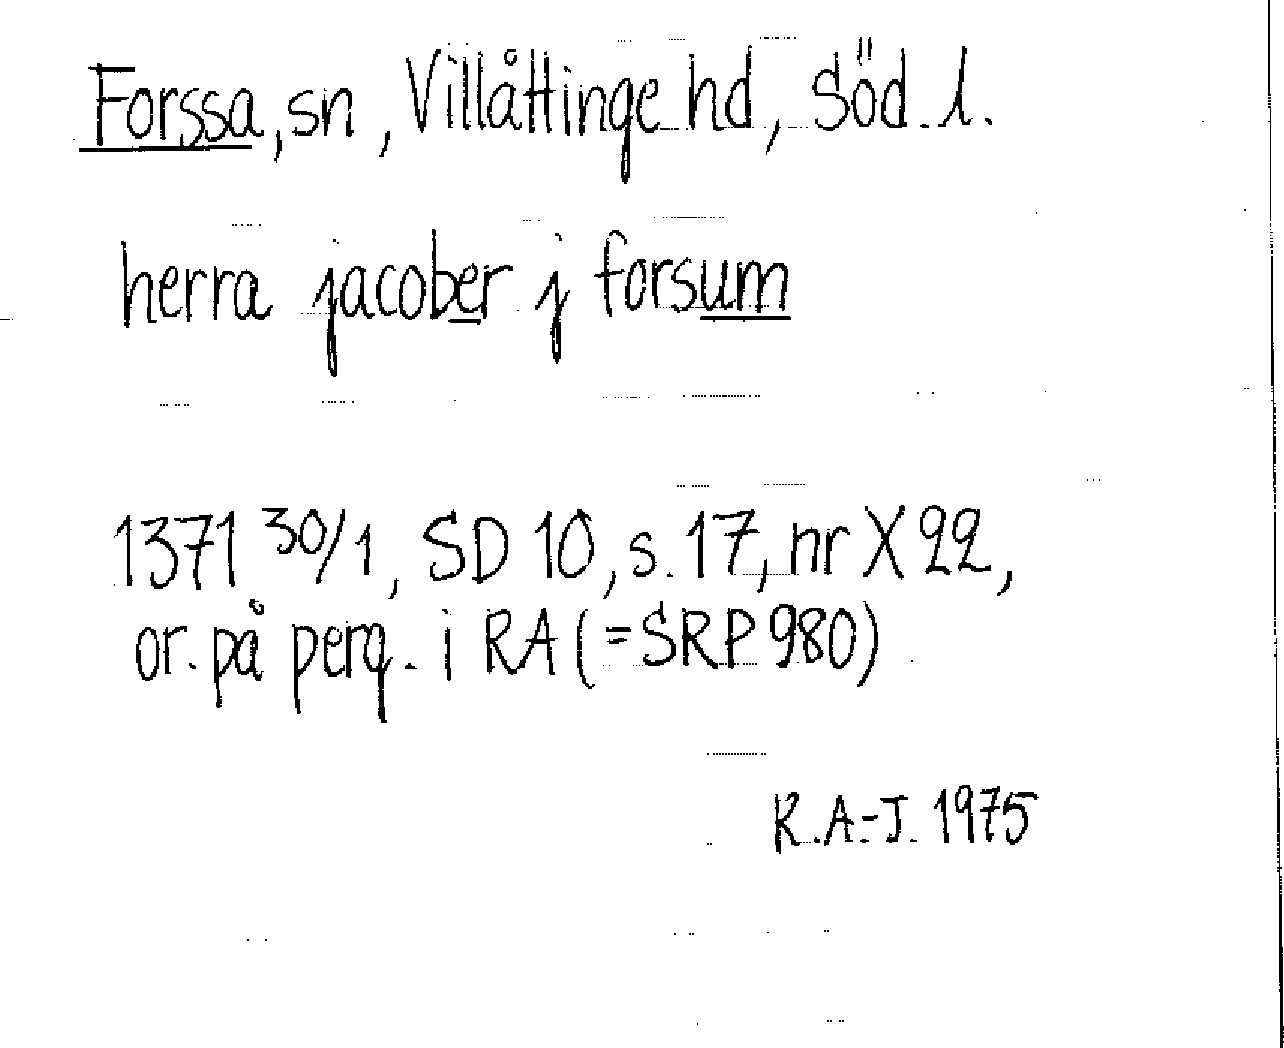 Forssa, sn, Villåttinge hd, Söd. l.
herra jacober j forsum
1371 30/1, SD 10, s. 17, nr X 22,
or. på perg. i RA (=SRP 980)
R.A.-J. 1975